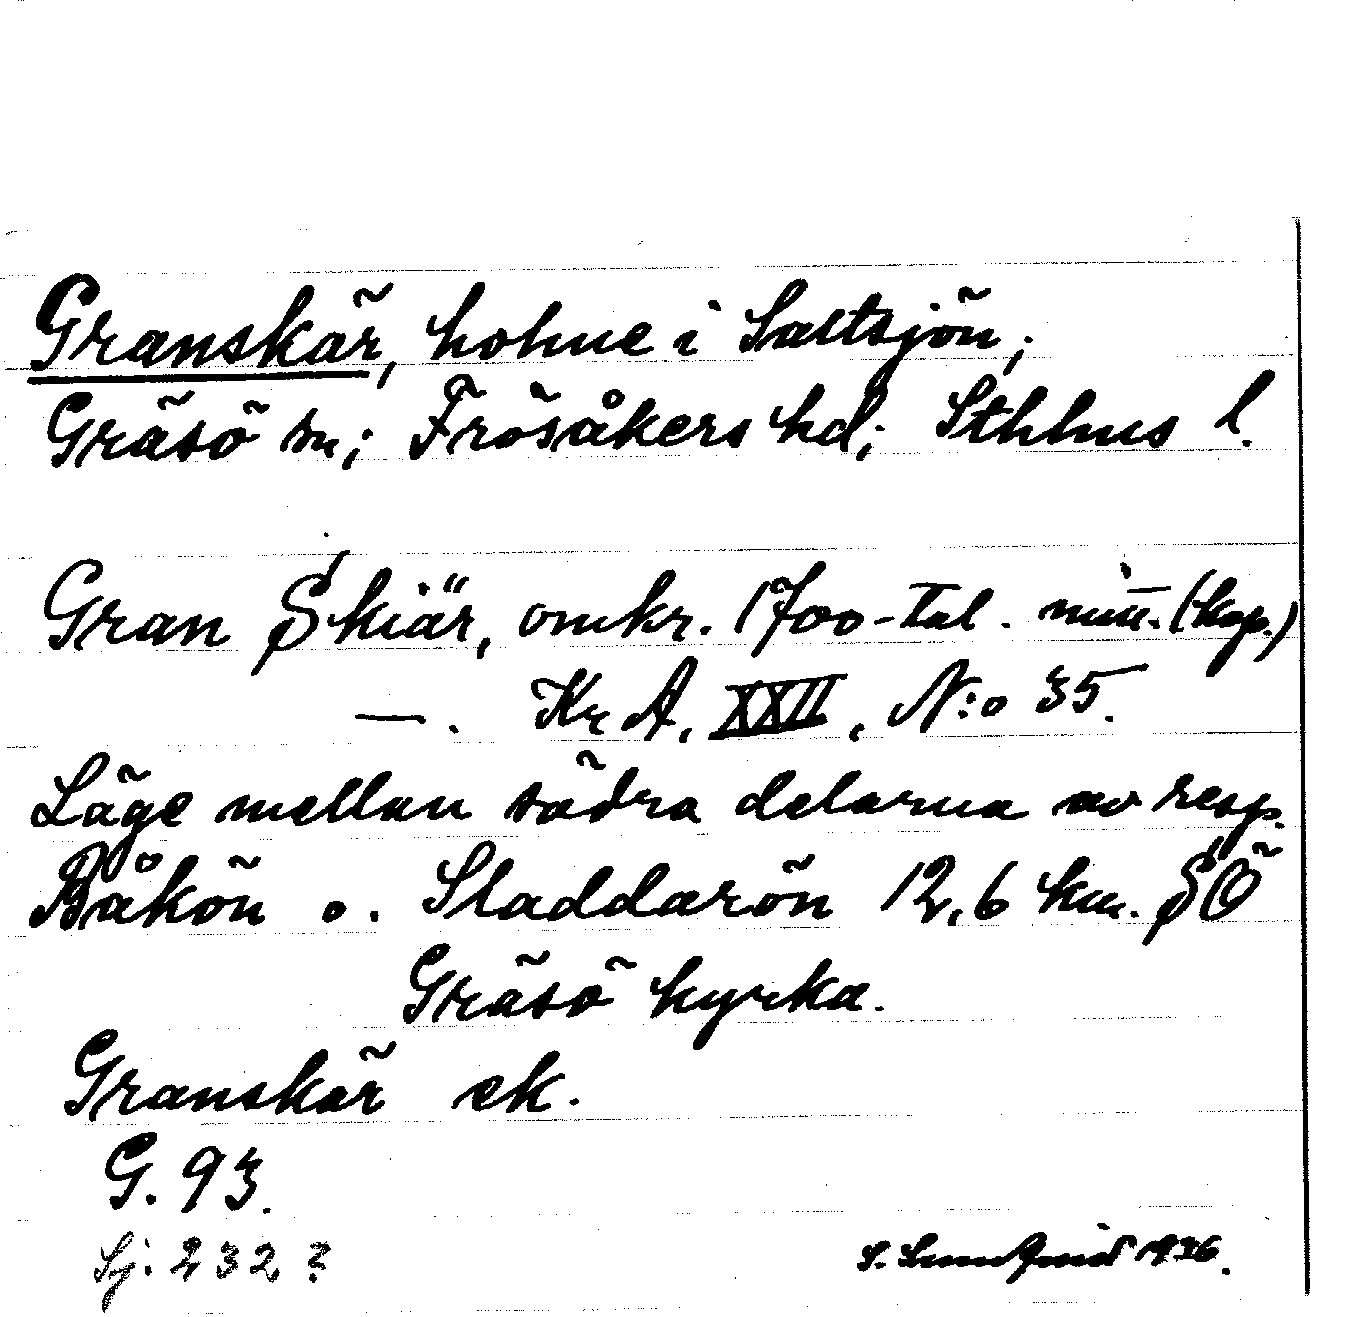 Granskär, holme i Saltsjön;
Gräsö sn; Frösåkers hd; Sthlms l.
Gran Skiär, omkr. 1700-tal. mitt. (kop.)
—. Kr A, XXII, N:o 35.
Läge mellan södra delarna av resp.
Båkön o. Sladdarön 12,6 km. SÖ
Gräsö kyrka.
Granskär ek.
G. 93.
Sj. 232?
S. Lundqvist 1936.